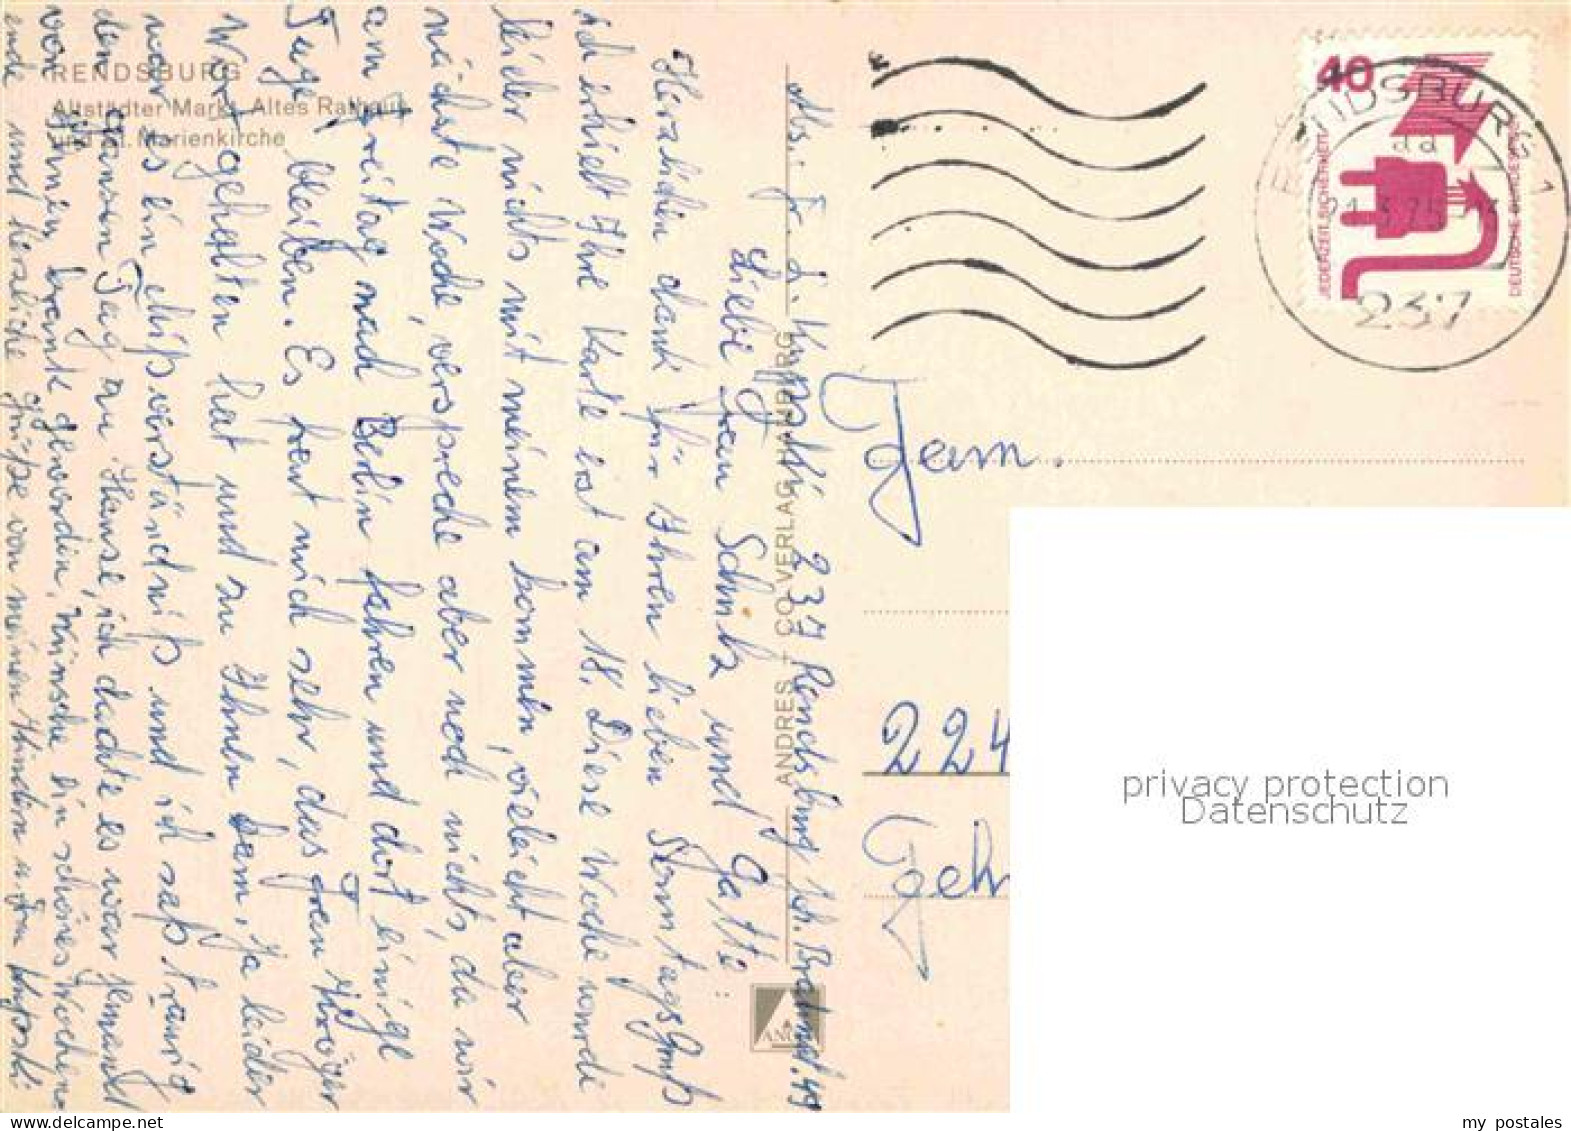 RENDSBURG
Altstädter Markt, Altes Rathaus
und St. Marienkirche
Abs. Fr. L. Kuposki 237 Rendsburg Brahmst. 49
Liebe Frau Schulz und Gatte:
Herzlichen dank für Ihren lieben Sonntagsgruß
ich erhielt Ihre Karte erst am 18. Diese Woche würde
leider nichts mit meinem kommen, vieleicht aber
nächste Woche, verspreche aber noch nichts, da wir
am Freitag nach Berlin fahren und dort einige
Tage bleiben. Es freut mich sehr, das Frau Kröger
Wort gehalten hat und zu Ihnen kam, Ja leider
war es ein Mißverständniß und ich saß traurig
den ganzen Tag zu Hause, ich dachte es war jemand
von Ihnen krank geworden, Wünsche ein schönes Wochen-
ende und herzliche grüße von meinen Kindern u. Fr. Kuposki
ANDRES + CO VERLAG HAMBURG
40
JEDERZEIT SICHERHEIT
DEUTSCHE BUNDESPOST
RENDSBURG 1
dd
21.3.75
237
Fam.
224
privacy protection
Datenschutz
my_postales